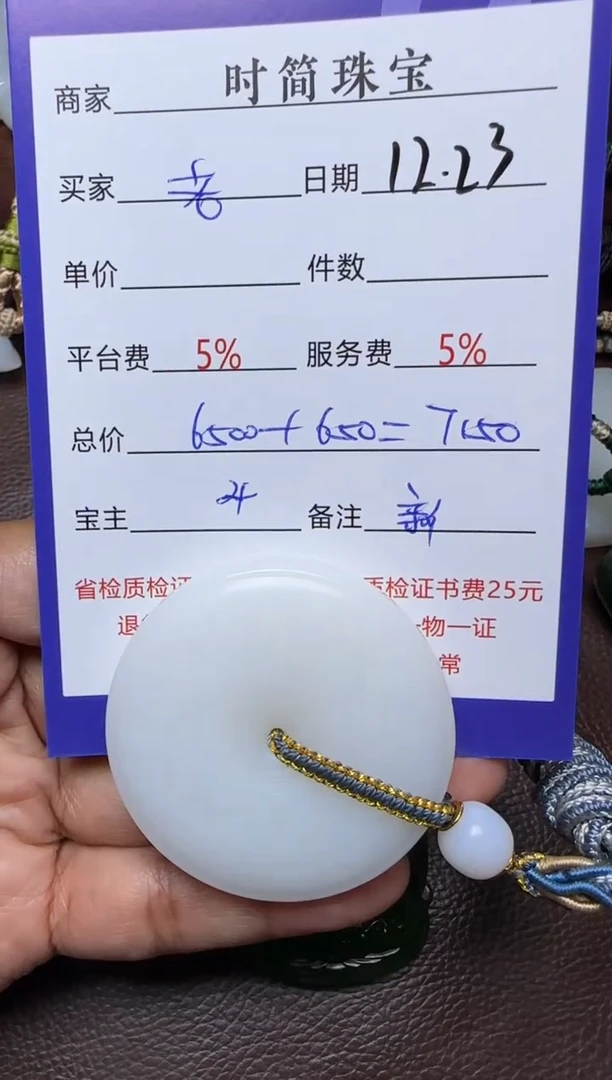 商家 时简珠宝
买家 日期 12.23
单价 件数
平台费 5% 服务费 5%
总价 6500+650=7150
宝主 备注 新
省检质检证 质检证书费25元
退 一物一证
常